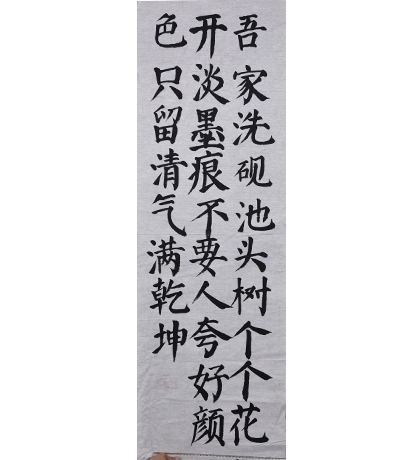 吾家洗砚池头树个个花
开淡墨痕不要人夸好颜
色只留清气满乾坤